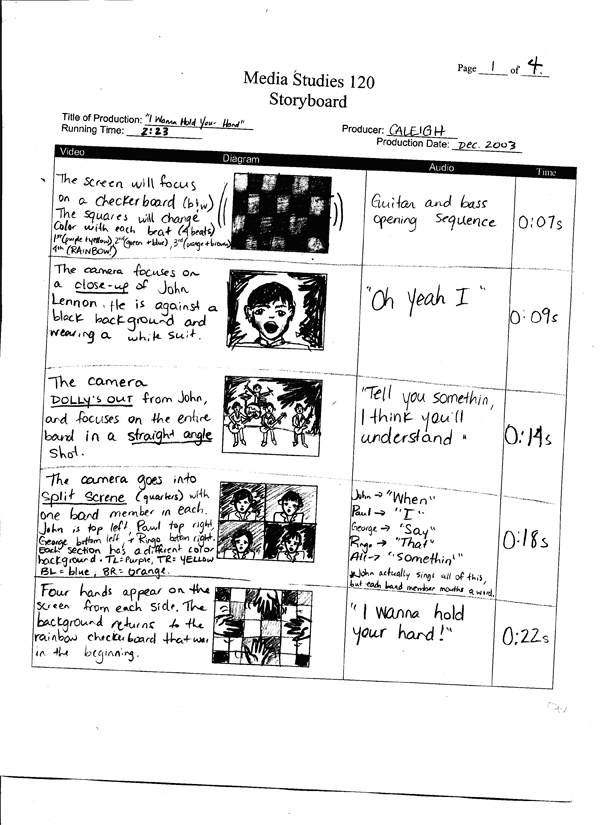 Page 1 of 4.
Media Studies 120
Storyboard
Title of Production: "I Wanna Hold Your Hand"
Running Time: 2:23
Producer: CALEIGH
Production Date: Dec. 2003
Video
Diagram
Audio
Time
The screen will focus
on a checkerboard (b+w)
The squares will change
color with each beat (4 beats)
1st (purple + yellow), 2nd (green + blue), 3rd (orange + brown)
4th (RAINBOW!)
Guitar and bass
opening sequence
0:07s
The camera focuses on
a close-up of John
Lennon. He is against a
black background and
wearing a white suit.
"Oh Yeah I"
0:09s
The camera
DOLLY'S OUT from John,
and focuses on the entire
band in a straight angle
shot.
"Tell you somethin,
I think you'll
understand"
0:14s
The camera goes into
Split Screne (quarters) with
one band member in each.
John is top left, Pawl top right,
George bottom left, + Ringo bottom right.
Each section has a different color
background. TL=Purple, TR=YELLOW
BL=blue, BR=orange.
John → "When"
Paul → "I"
George → "Say"
Ringo → "That"
All → "Somethin'"
*John actually sings all of this,
but each band member mouths a word.
0:18s
Four hands appear on the
screen from each side. The
background returns to the
rainbow checkerboard that was
in the beginning.
"I Wanna hold
your hand!"
0:22s